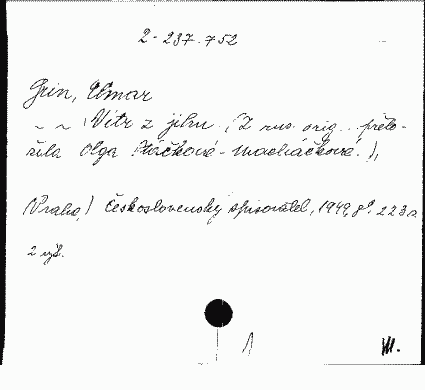 2-237.752
Grin, Elmar
~ ~ Vítr z jihu. (Z rus. orig. přelo-
žila Olga Ptáčková-Macháčková.),
(Praha,) Československý spisovatel, 1949, 8°. 223 s.
2 výt.